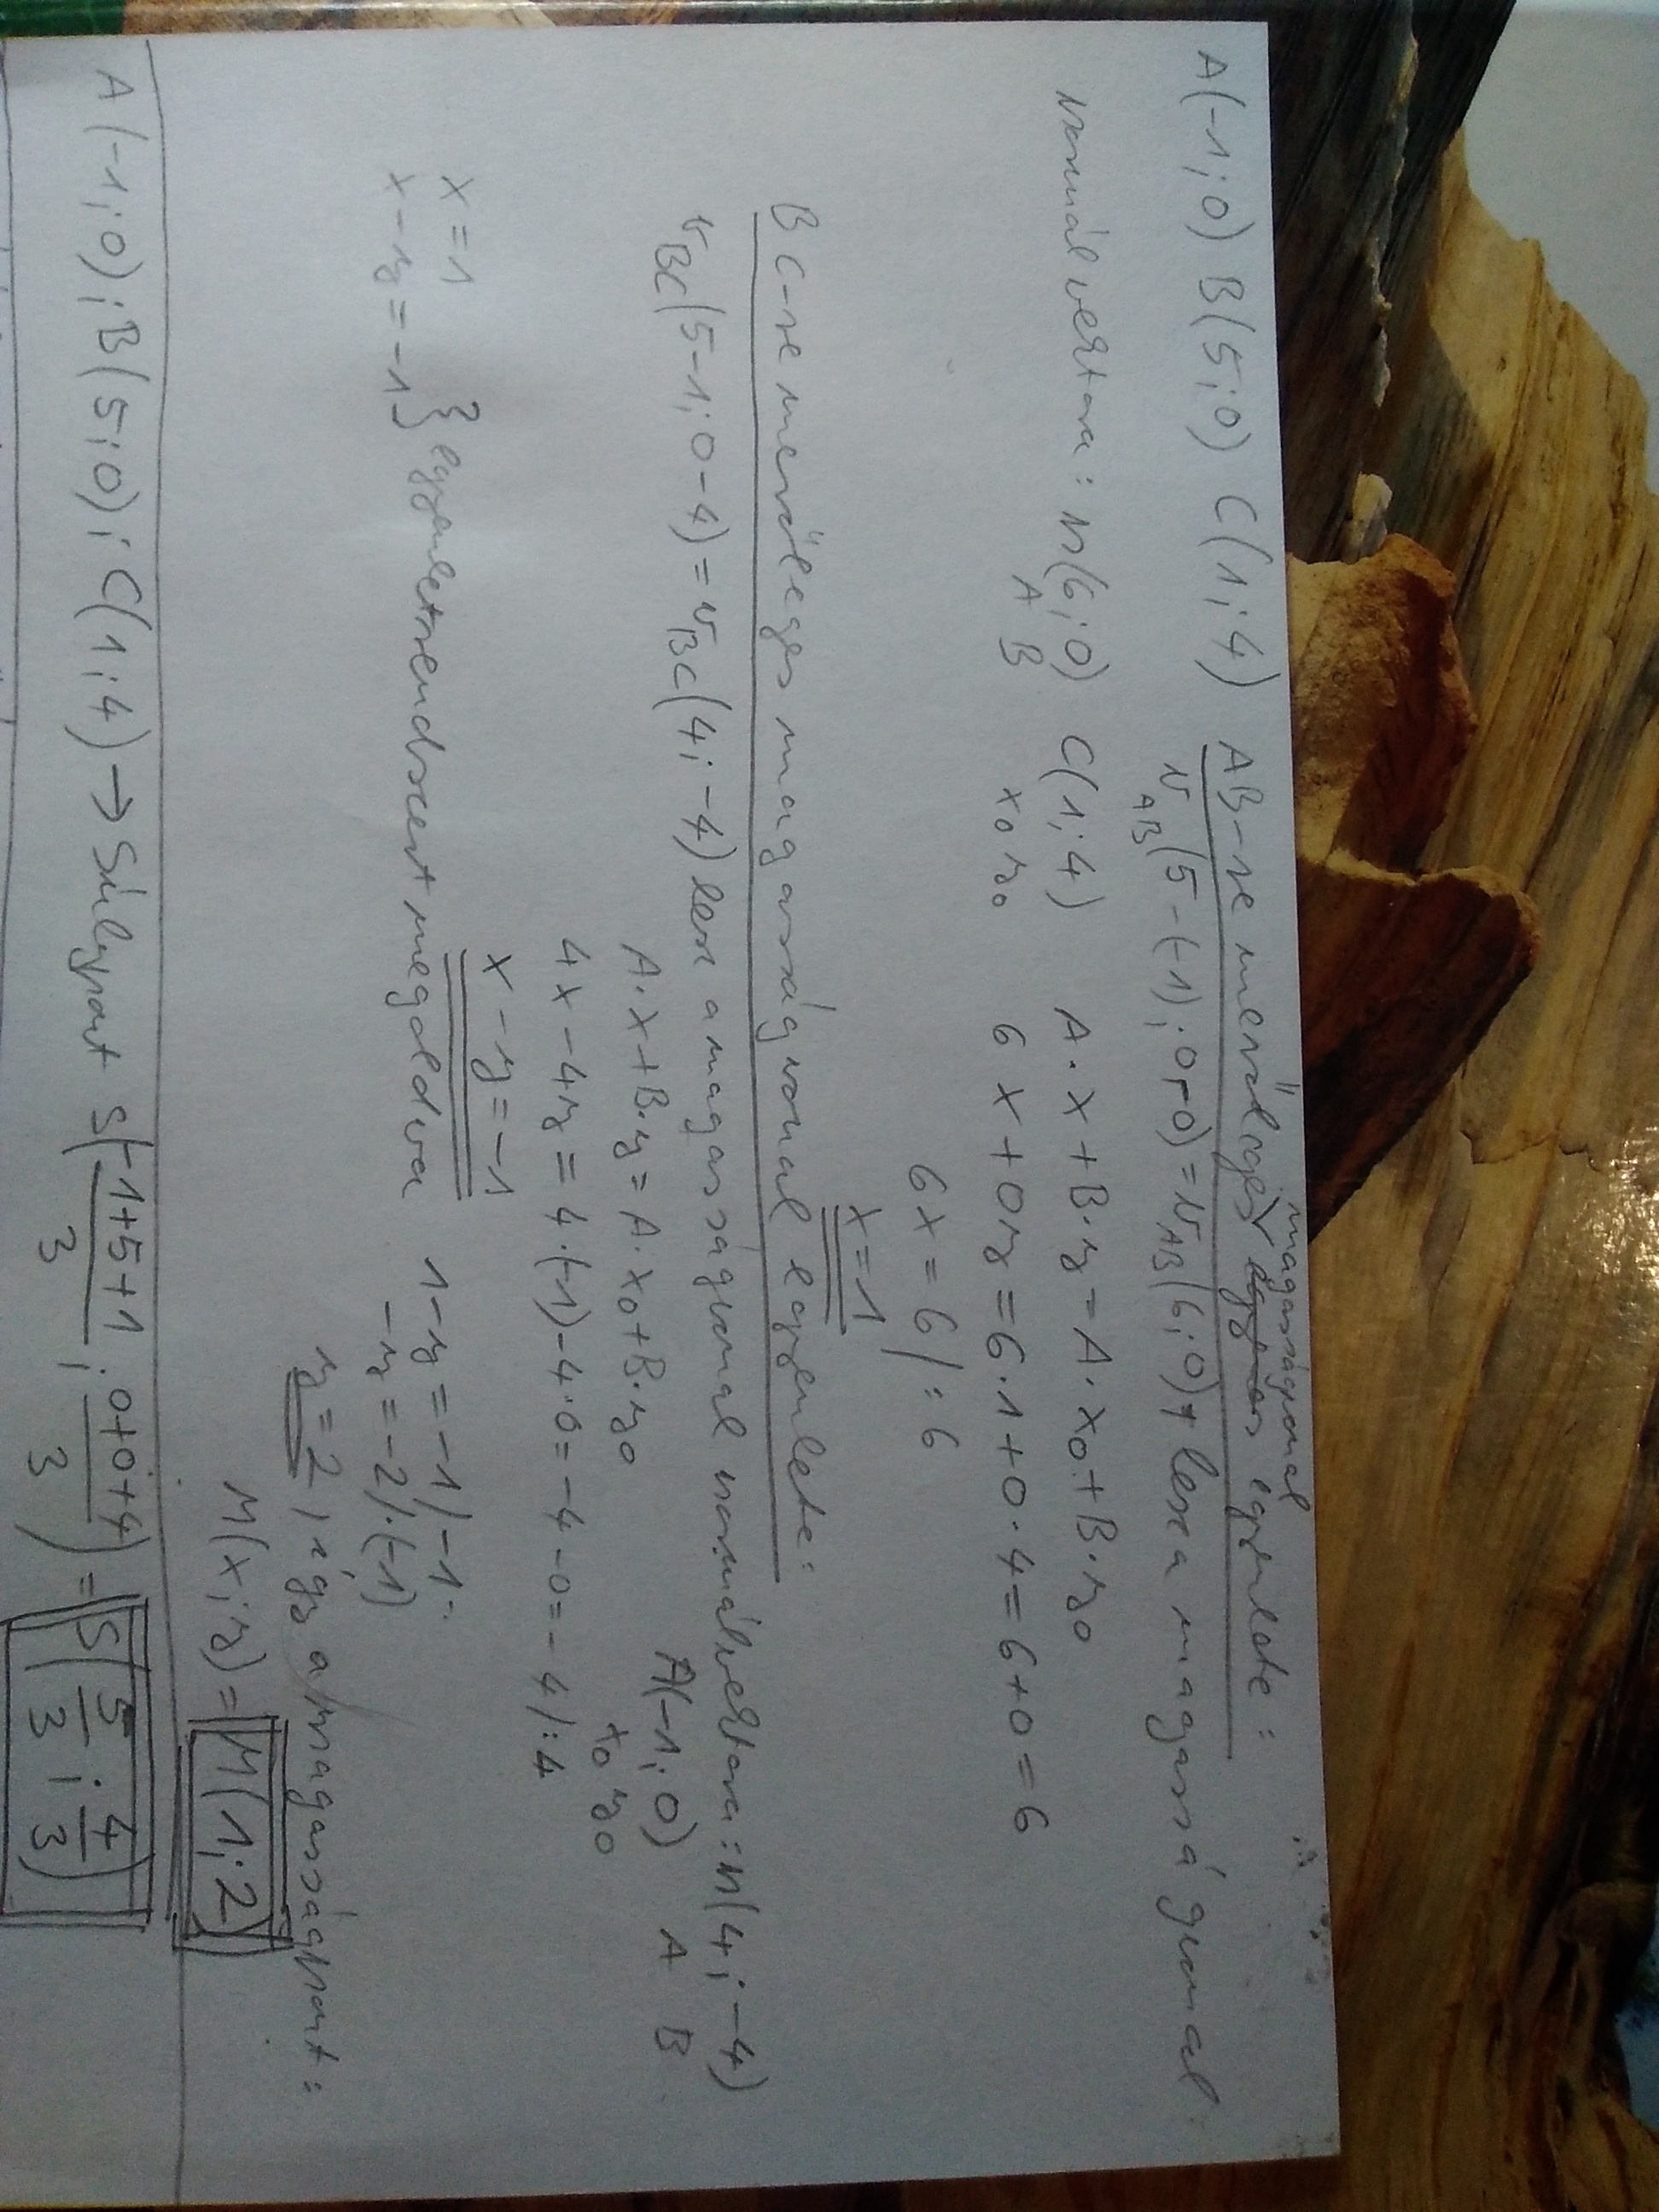 A(-1;0) B(5;0) C(1;4) AB-re merőleges magasságvonal egyenlete:
v_AB(5-(-1);0-0)=v_AB(6;0) lesz a magasságvonal
normálvektora: n(6;0) C(1;4) A·x+B·y=A·x0+B·y0
A B x0 y0 6x+0y=6·1+0·4=6+0=6
6x=6/:6
x=1
BC-re merőleges magasságvonal egyenlete:
v_BC(5-1;0-4)=v_BC(4;-4) lesz a magasságvonal normálvektora: n(4;-4)
A·x+B·y=A·x0+B·y0 A(-1;0) A B
x0 y0
4x-4y=4·(-1)-4·0=-4-0=-4/:4
x-y=-1
x=1
x-y=-1 } egyenletrendszert megoldva 1-y=-1/-1
-y=-2/·(-1)
y=2, így a magasságpont:
M(x;y)=M(1;2)
A(-1;0);B(5;0);C(1;4)→Súlypont S(-1+5+1/3;0+0+4/3)=S(5/3;4/3)